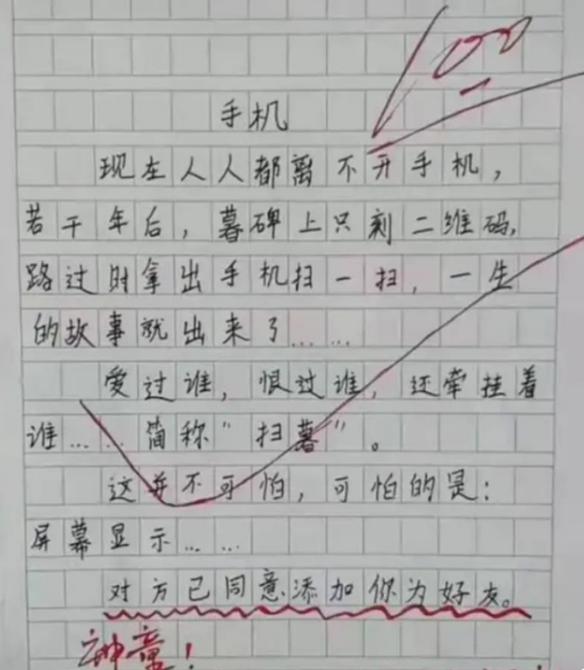 100
手机
现在人人都离不开手机，
若干年后，暮碑上只刻二维码，
路过时拿出手机扫一扫，一生
的故事就出来了……
爱过谁，恨过谁，还牵挂着
谁……简称“扫暮”。
这并不可怕，可怕的是：
屏幕显示……
对方已同意添加你为好友。
神童！